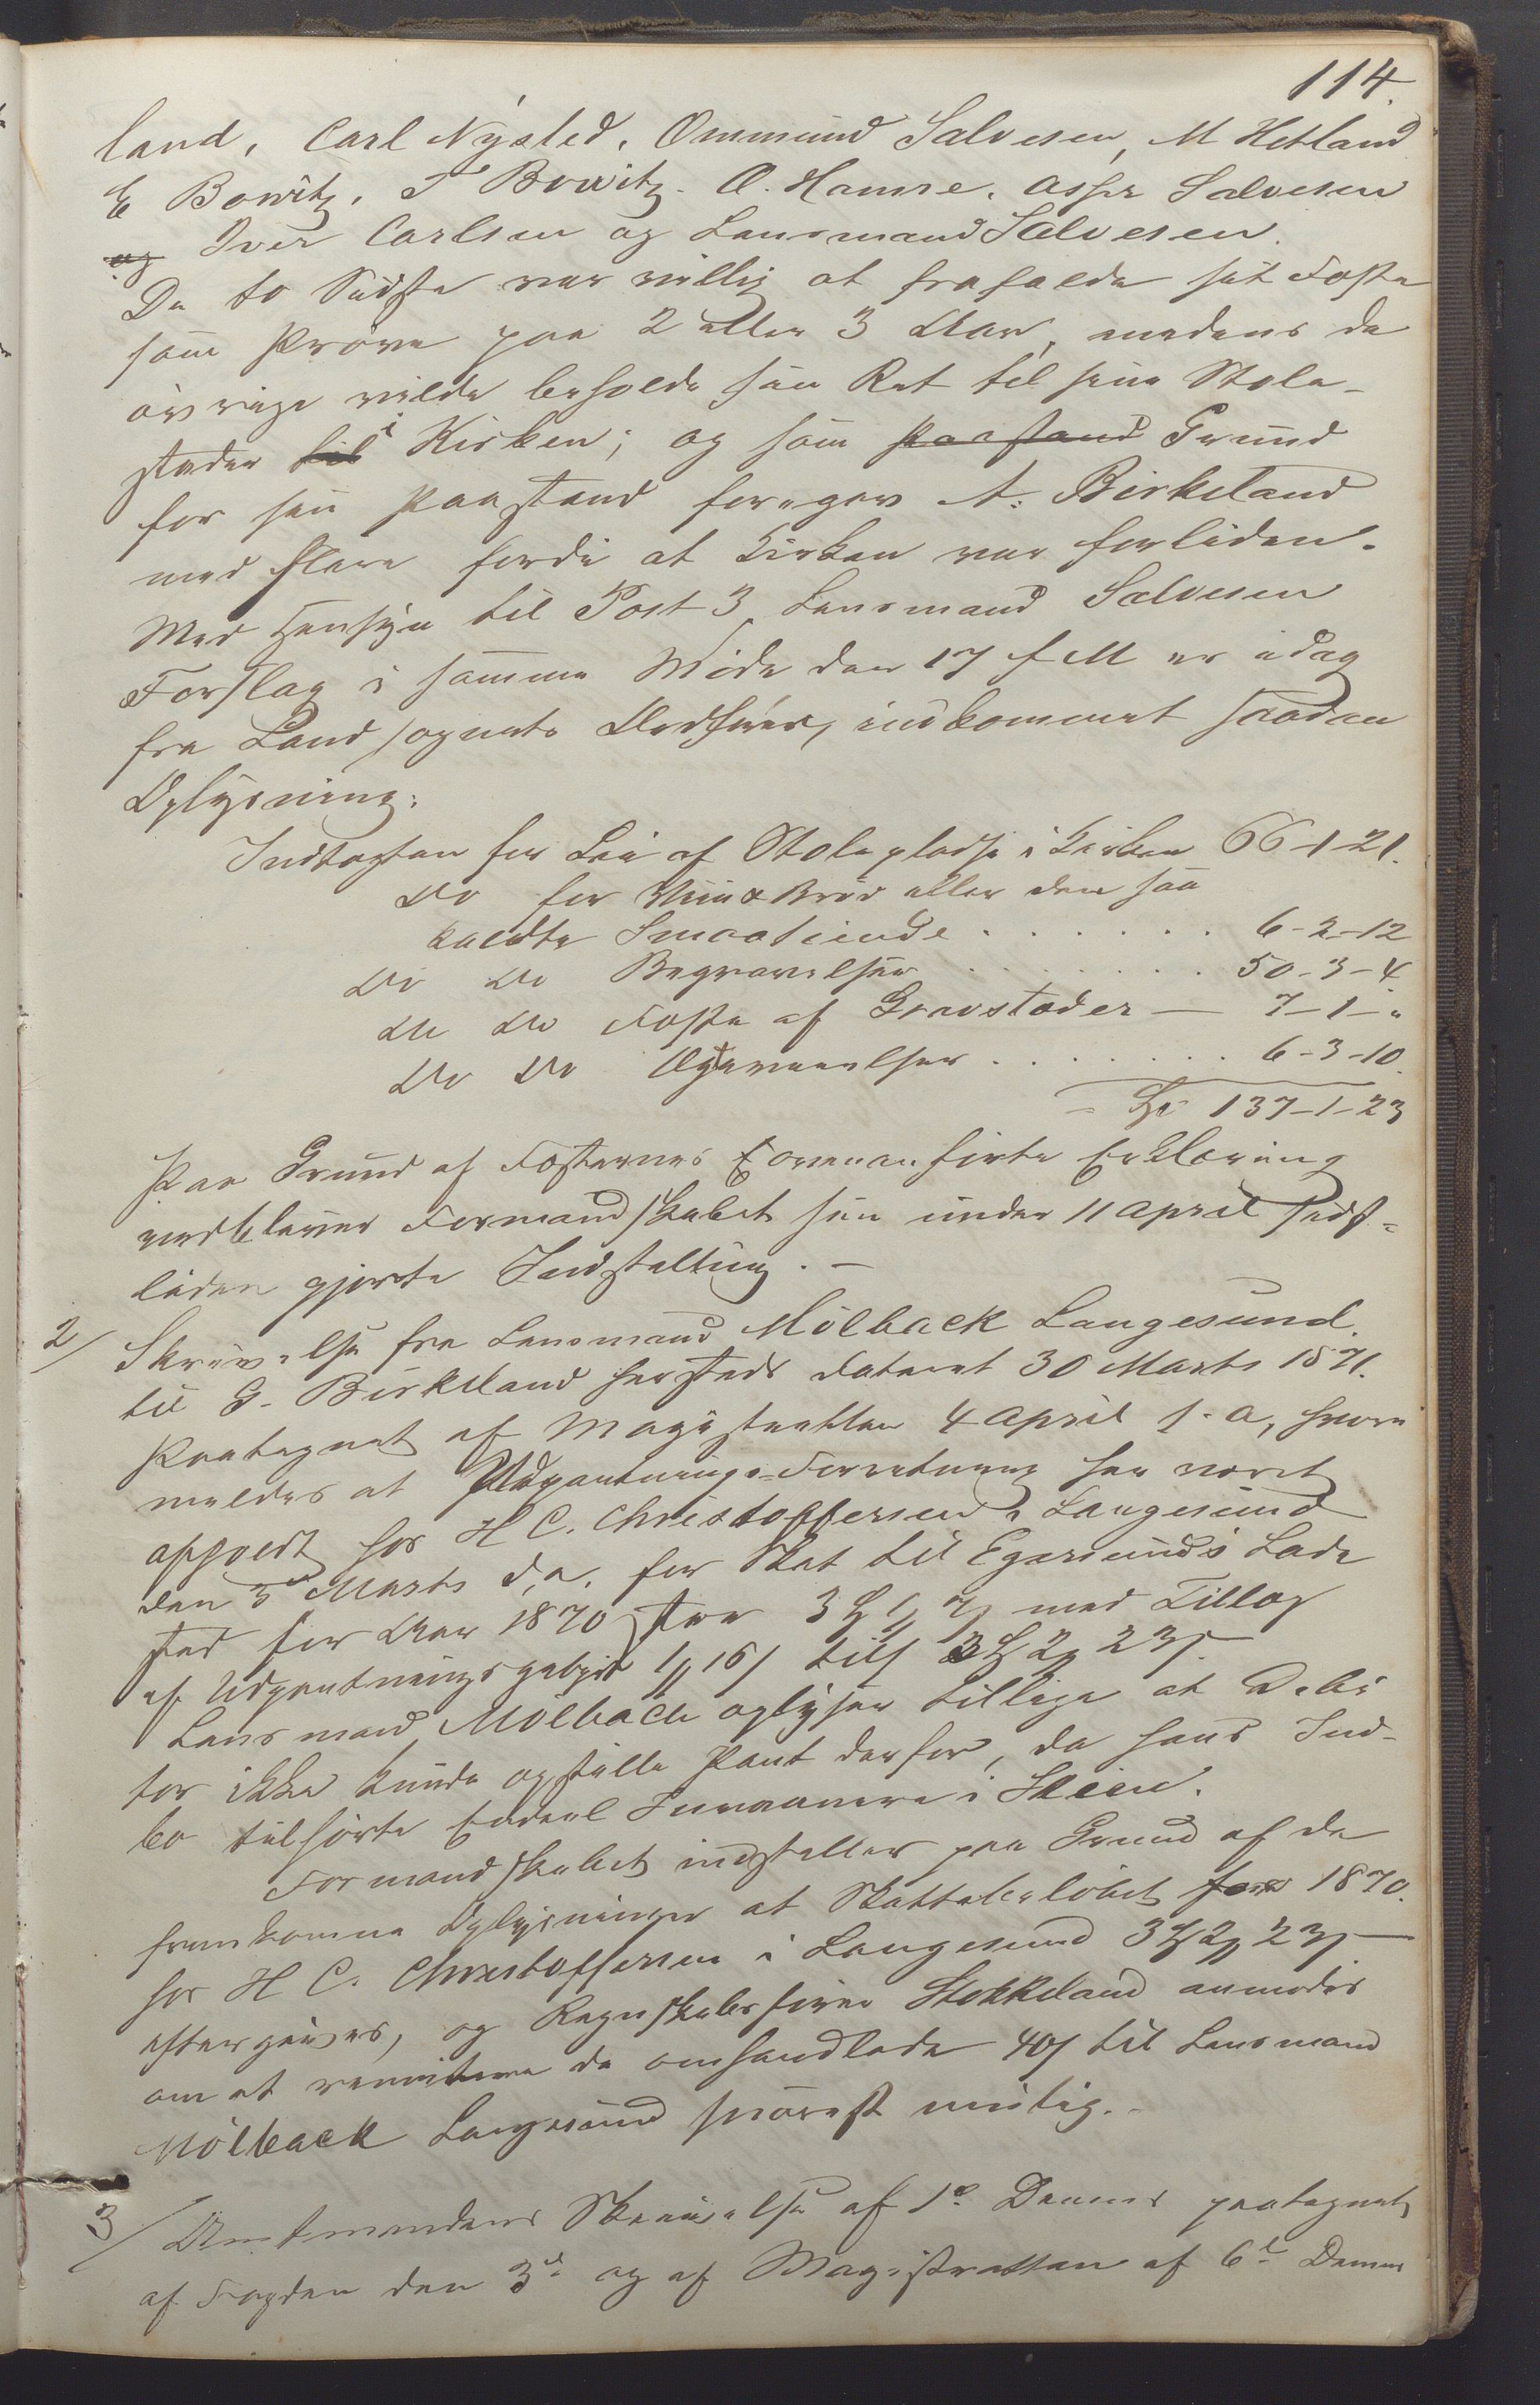 114.
land, Carl Nÿsted, Ommund Salvesen, M Hetland
E Bowitz, T Bowitz. O. Hamre. Asser Salvesen
og Iver Carlsen og Lensmand Salvesen.
De to Sidste var villig at frafalde sit Fæste
som Prøve paa 2 eller 3 Aar, medens de
øvrige vilde beholde sin Ret til sine Stole-
stader til i Kirken; og som Paastand Grund
for sin Paastand foregav A. Birkeland
med flere fordi at Kirken var forliden.
Med Hensyn til Post 3 Lensmand Salvesen
Forslag i samme Møde den 17 f M er idag
fra Landsognets Ordfører, indkommet saadan
Oplysning:
Indtægten for Leie af Stolepladse i Kirken 66-1-21.
Do for Viin & Brød eller den saa
kaldte Smaatiende . . . . . . 6-2-12
Do Do Begravelser . . . . . . 50-3-4
Do Do Fæste af Gravstæder — 7-1-"
Do Do Ægtevielser . . . . . . 6-3-10.
137-1-23
Paa Grund af Fæsternes Erklæring
vedbliver Formandskabet sin under 11 April sidst-
liden gjorte Indstilling. —
2/ Skrivelse fra Lensmand Mölback Langesund
til G. Birkeland hersteds dateret 30 Marts 1871.
Paategnet af Magistratten 4 April s. a, hvori
meldes at Udpantnings-Forretning har været
afholdt hos H C. Christoffersen i Langesund
den 3 Marts d.a. for Skat til Egersunds Lade
sted for Aar 1870 stor 3 med Tillæg
af Udpantningsgebyr
Lensmand Mölback oplyser tillige at Debi
tor ikke kunde opstille Pant derfor, da hans Ind-
bo tilhørte i Skien.
Formandskabet indstiller paa Grund af de
fremkomne Oplysninger at Skattebeløbet for 1870.
hos H C. Christoffersen i Langesund
eftergives, og Regnskabsfører Stokkeland anmodes
om at remitere de omhandlede 40 s til Lensmand
Mölback Langesund snarest mulig. -
3/ Amtmandens Skrivelse af 1ste Dennes paategnet
af Fogden den 3d og af Magistratten af 6te Dennes